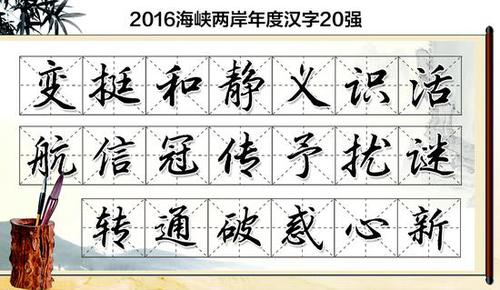 2016海峡两岸年度汉字20强
变挺和静义识活
航信冠传予扰谜
转通破惑心新